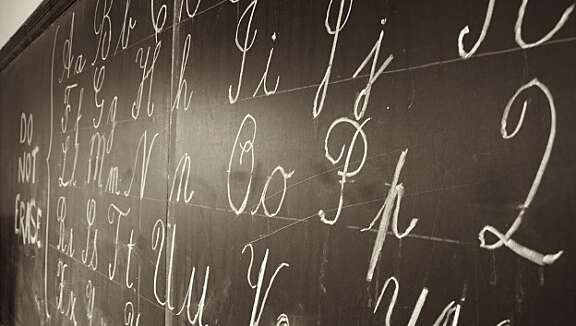 DO
NOT
ERASE
Aa Bb
Ff Gg Hh Ii Jj
Ll Mm Nn Oo Pp Q
Rr Ss Tt Uu V
Xx